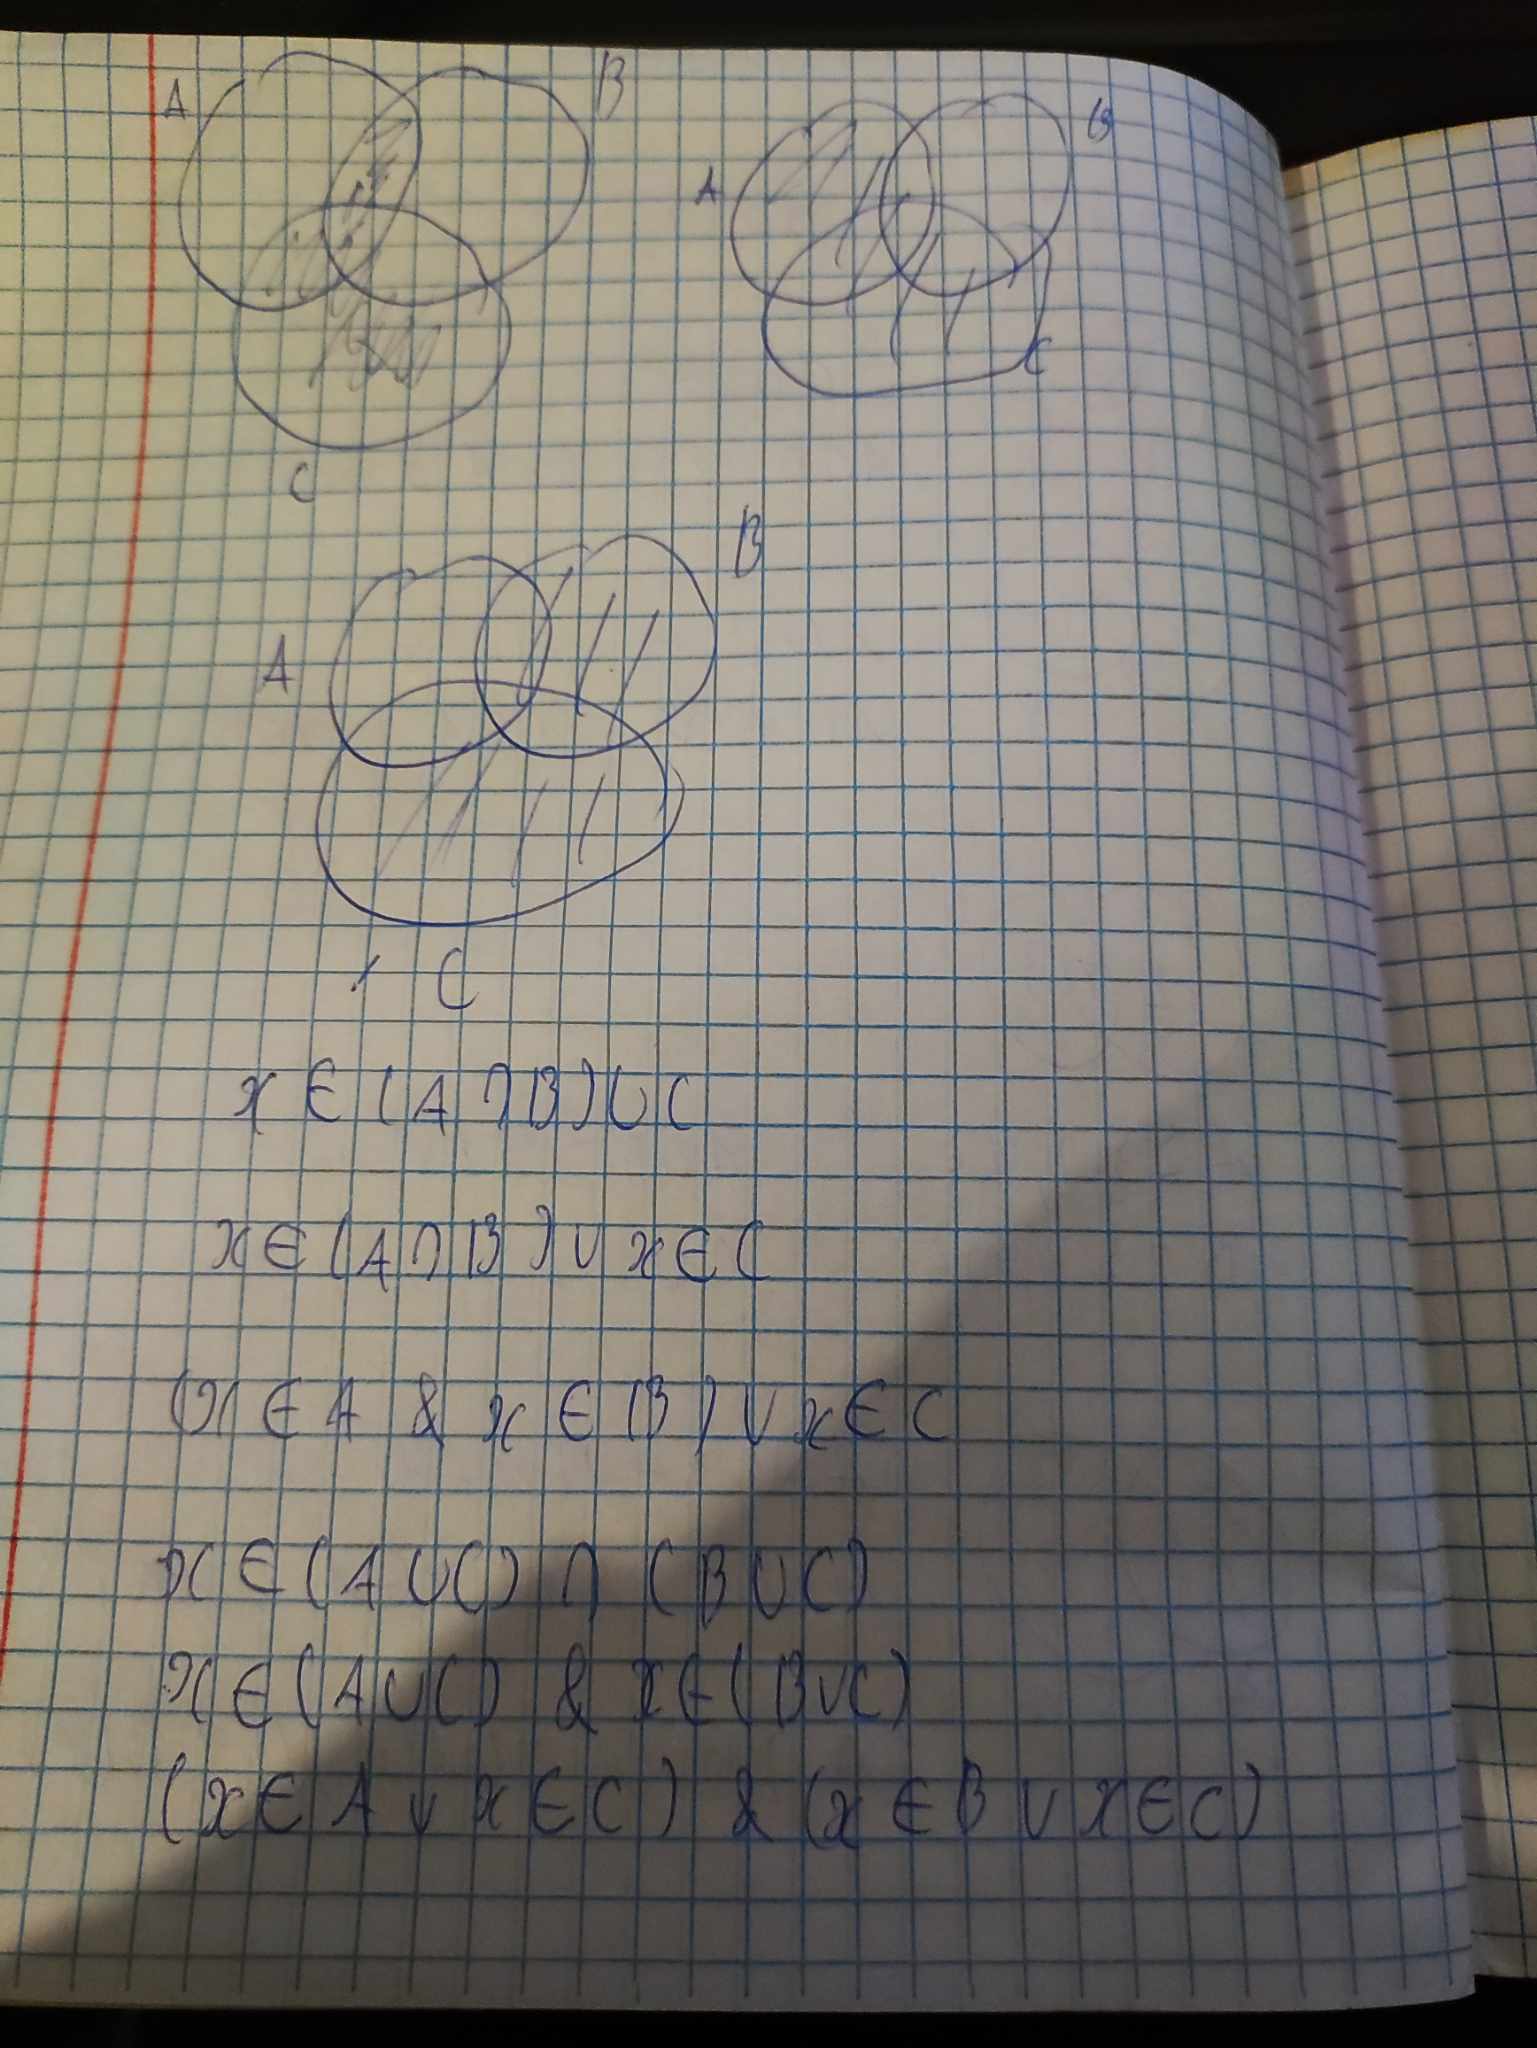 A B
A B
C
C
B
A
C
x ∈ (A ∩ B) ∪ C
x ∈ (A ∩ B) ∨ x ∈ C
(x ∈ A & x ∈ B) ∨ x ∈ C
x ∈ (A ∪ C) ∩ (B ∪ C)
x ∈ (A ∪ C) & x ∈ (B ∪ C)
(x ∈ A ∨ x ∈ C) & (x ∈ B ∨ x ∈ C)